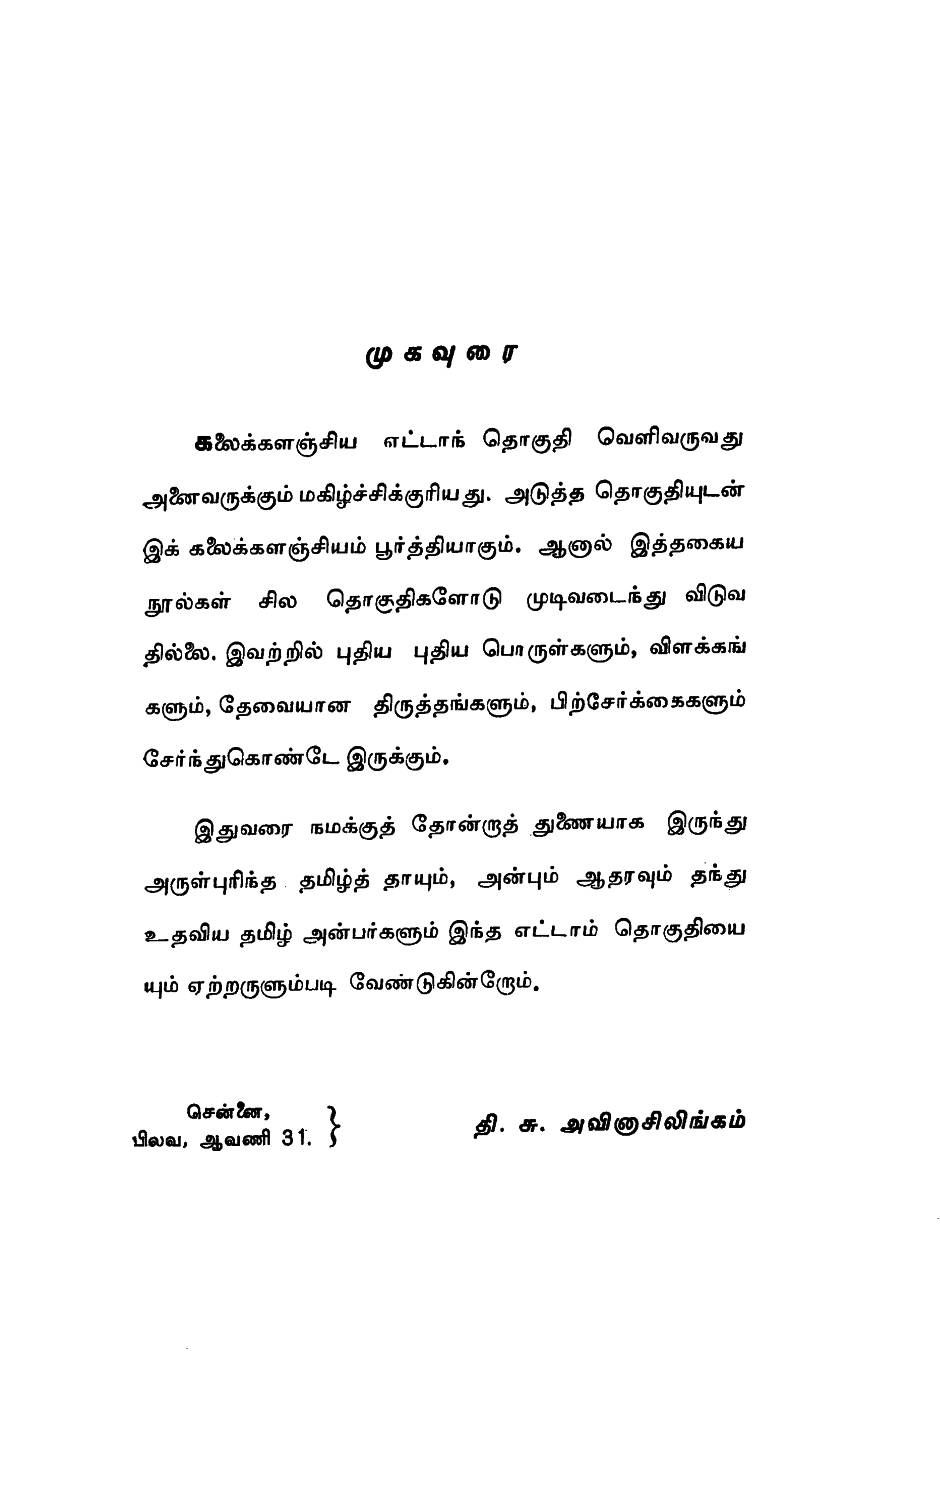 முகவுரை
கலைக்களஞ்சிய எட்டாந் தொகுதி வெளிவருவது
அனைவருக்கும் மகிழ்ச்சிக்குரியது. அடுத்த தொகுதியுடன்
இக் கலைக்களஞ்சியம் பூர்த்தியாகும். ஆனால் இத்தகைய
நூல்கள் சில தொகுதிகளோடு முடிவடைந்து விடுவ
தில்லை. இவற்றில் புதிய புதிய பொருள்களும், விளக்கங்
களும், தேவையான திருத்தங்களும், பிற்சேர்க்கைகளும்
சேர்ந்துகொண்டே இருக்கும்.
இதுவரை நமக்குத் தோன்றாத் துணையாக இருந்து
அருள்புரிந்த தமிழ்த் தாயும், அன்பும் ஆதரவும் தந்து
உதவிய தமிழ் அன்பர்களும் இந்த எட்டாம் தொகுதியை
யும் ஏற்றருளும்படி வேண்டுகின்றோம்.
சென்னை,
பிலவ, ஆவணி 31. }
தி. சு. அவினாசிலிங்கம்